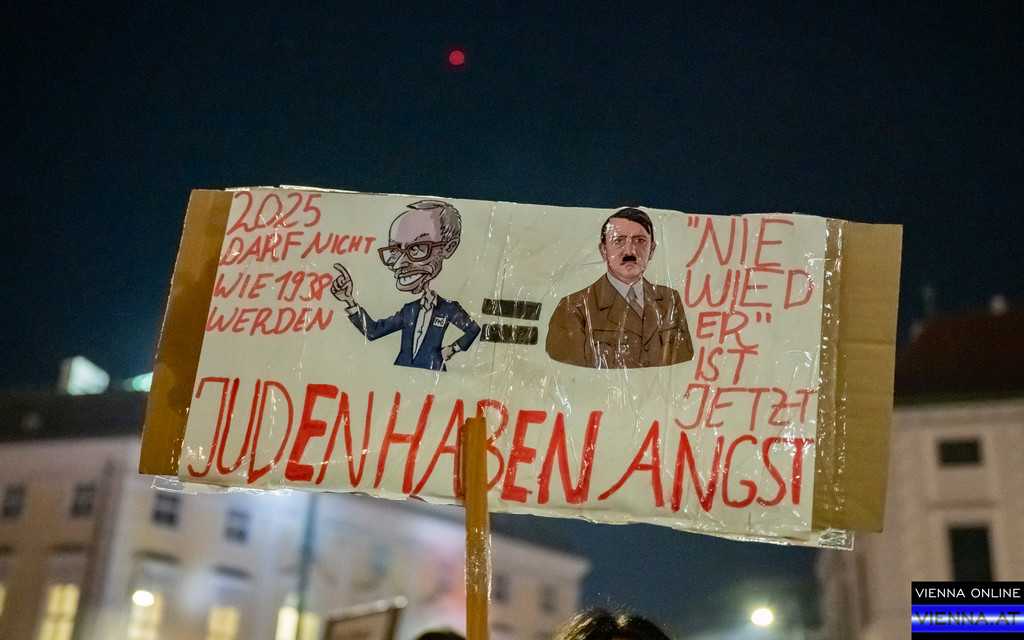 2025
DARF NICHT
WIE 1938
WERDEN
"NIE
WIED
ER"
IST
JETZT
JUDEN HABEN ANGST
VIENNA ONLINE
VIENNA.AT